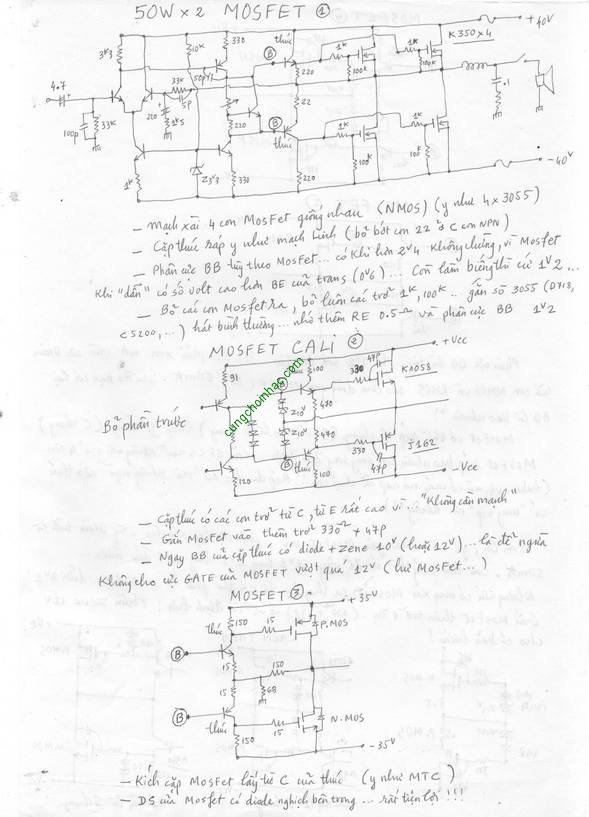 50W x 2 MOSFET ①
+40V
K350 x 4
thúc
3K3
10K
330
B
1K
1K
220
100K
100K
4.7
50p
33K
5p
.1
22
100p
33K
220
1K5
220
B
thúc
1K
1K
1K
Z3V3
330
220
100K
100K
-40V
– Mạch xài 4 con MosFet giống nhau (NMOS) (y như 4 x 3055)
– Cặp thúc ráp y như mạch Linh (bỏ bớt con 22 ở C con NPN)
– Phân cực BB tùy theo MosFet... có khi hơn 2V4 không chừng, vì Mosfet
khi "dẫn" có số volt cao hơn BE của trans (0V6)... Còn làm biếng thì cứ 1V2...
– Bỏ các con Mosfet ra, bỏ luôn các trở 1K, 100K.. gắn sò 3055 (D718,
C5200,...) hát bình thường... nhớ thêm RE 0.5Ω và phân cực BB 1V2
MOSFET CALI ②
+Vcc
91
100
47p
330
K1058
cungchoinhac.com
Bộ phận trước
Z10V
Z10V
470
470
B
330
J162
47p
120
thúc
100
-Vcc
– Cặp thúc có các con trở từ C, từ E rất cao vì... "Không cần mạnh"
– Gắn Mosfet vào thêm trở 330Ω + 47p
– Ngay BB của cặp thúc có diode + Zene 10V (hoặc 12V)... là để ngừa
Không cho cực GATE của MOSFET vượt quá 12V (hư MosFet...)
MOSFET ③
+35V
thúc
150
15
P.MOS
B
15
150
15
68
B
N.MOS
thúc
15
150
-35V
– Kích cặp MosFet lấy từ C của thúc (y như MTC)
– DS của Mosfet có diode nghịch bên trong... rất tiện lợi !!!